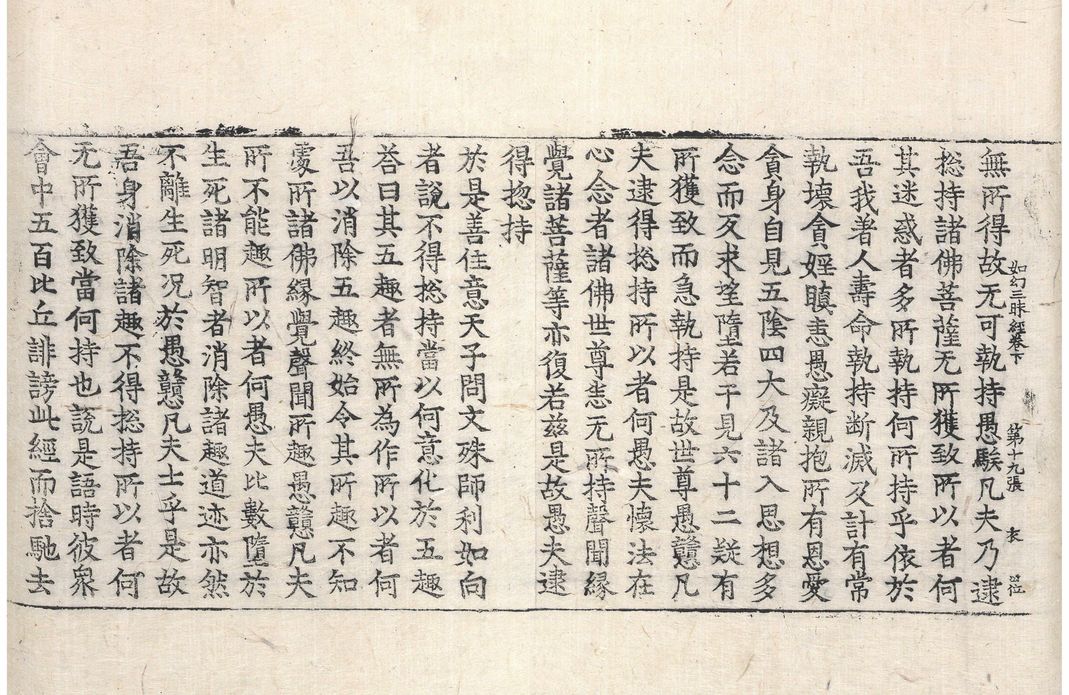 如幻三昧經卷下　第十九張　衣
無所得故无可執持愚騃凡夫乃逮
捴持諸佛菩薩无所獲致所以者何
其迷惑者多所執持何所持乎依於
吾我著人壽命執持断滅及計有常
執壞貪婬瞋恚愚癡親抱所有恩愛
貪身自見五陰四大及諸入思想多
念而反求望墮若干見六十二疑有
所獲致而急執持是故世尊愚戇凡
夫逮得捴持所以者何愚夫懷法在
心念者諸佛世尊悉无所持聲聞緣
覺諸菩薩等亦復若兹是故愚夫逮
得捴持
於是善住意天子問文殊師利如向
者說不得捴持當以何意化於五趣
荅曰其五趣者無所為作所以者何
吾以消除五趣終始令其所趣不知
處所諸佛緣覺聲聞所趣愚戇凡夫
所不能趣所以者何愚夫比數墮於
生死諸明智者消除諸趣道迹亦然
不離生死况於愚戇凡夫士乎是故
吾身消除諸趣不得捴持所以者何
无所獲致當何持也說是語時彼衆
會中五百比丘誹謗此經而捨馳去